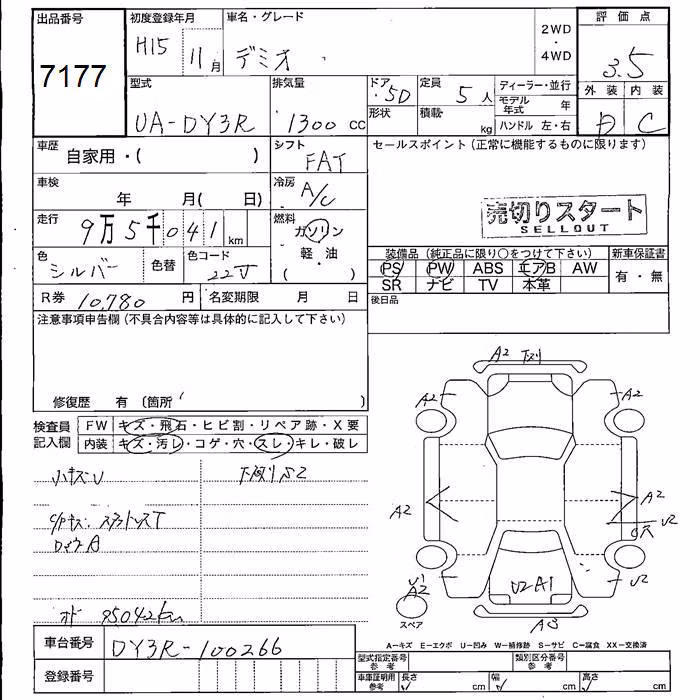 出品番号 初度登録年月 車名・グレード 評価点
7177 H15 11月 デミオ 2WD・4WD 3.5
型式 排気量 ドア 定員 ディーラー・並行 外装 内装
UA-DY3R 1300cc 5D 5人 モデル年式 年 D C
形状 積載 kg ハンドル 左・右
車歴 自家用・( ) シフト FAT セールスポイント(正常に機能するものに限ります)
車検 年 月( 日) 冷房 A/C
売切りスタート
SELLOUT
走行 9万5千041km 燃料 ガソリン(軽・油)
色 シルバー 色替 色コード 22V
装備品(純正品に限り○をつけて下さい) 新車保証書
PS PW ABS エアB AW 有・無
SR ナビ TV 本革
R券 10,780円 名変期限 月 日 後日品
注意事項申告欄(不具合内容等は具体的に記入して下さい)
修復歴 有 (箇所
検査員記入欄 FW キズ・飛石・ヒビ割・リペア跡・X要
内装 キズ・汚レ・コゲ・穴・スレ・キレ・破レ
小キズU
95042km
A2
A2 A2
A2 A2
U2
U1
A2
U2A1
U2
スペア
A3
車台番号 DY3R-100266
登録番号
A-キズ E-エクボ U-凹み W-補修跡 S-サビ C-腐食 XX-交換済
型式指定番号 参考 類別区分番号 参考
車庫証明用 参考 長さ cm 幅 cm 高さ cm